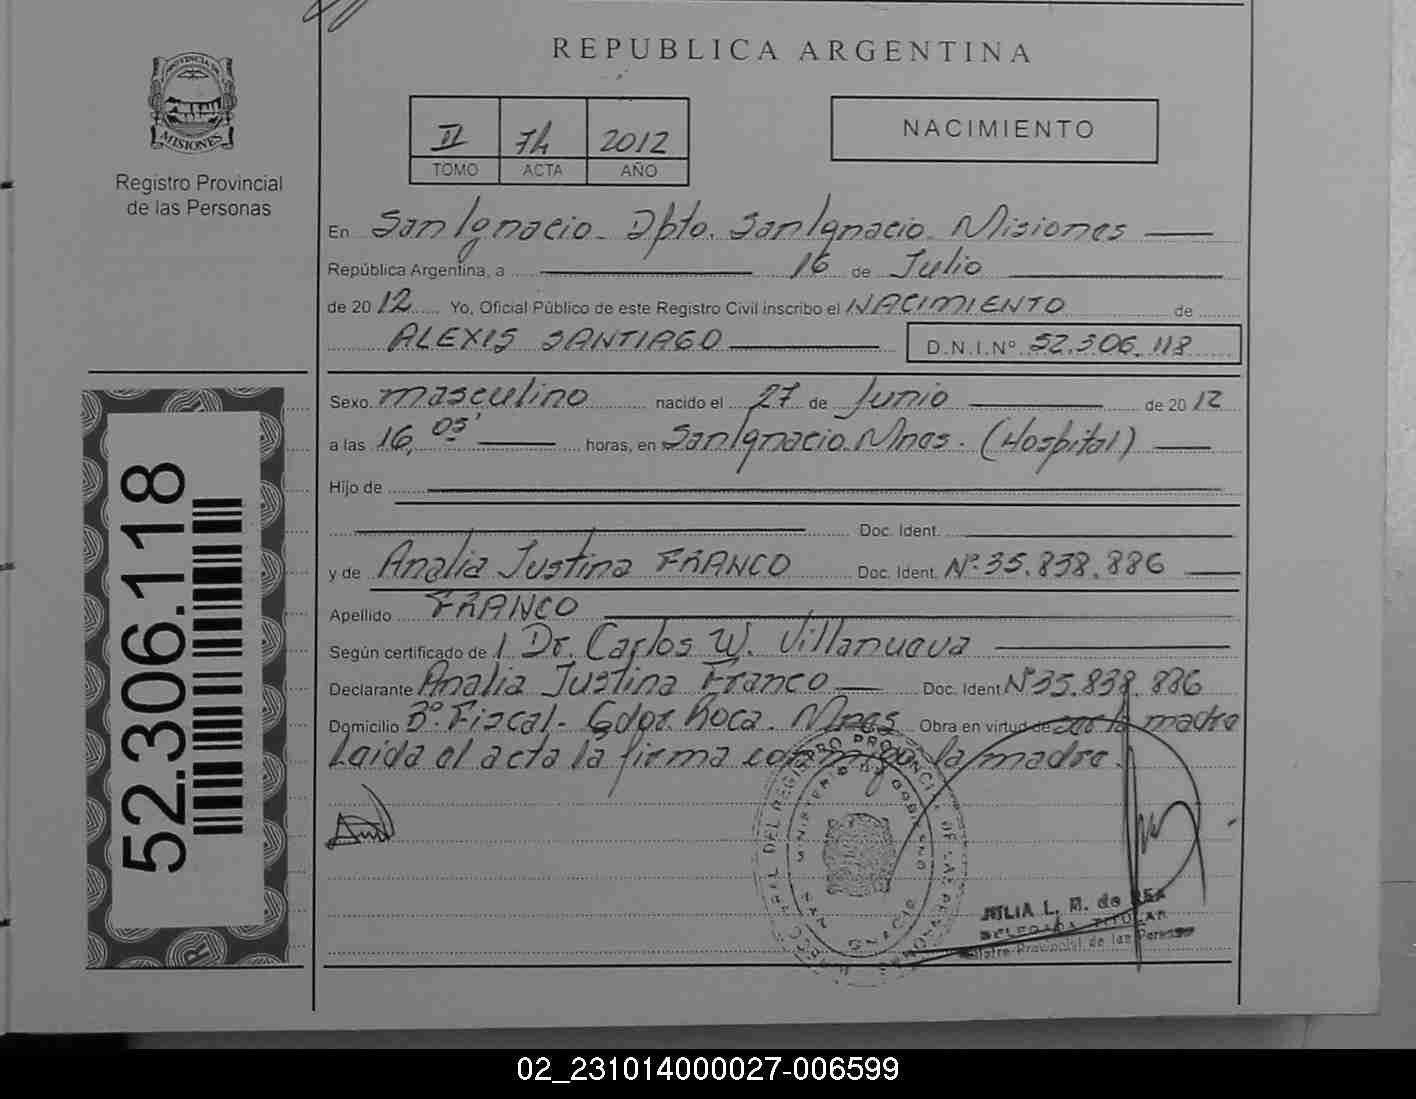 REPUBLICA ARGENTINA
PROVINCIA DE
MISIONES
Registro Provincial
de las Personas
II 74 2012
TOMO ACTA AÑO
NACIMIENTO
En San Ignacio - Dpto. San Ignacio - Misiones
República Argentina, a 16 de Julio
de 2012 Yo, Oficial Público de este Registro Civil inscribo el NACIMIENTO de
ALEXIS SANTIAGO D.N.I.Nº 52.306.118
Sexo masculino nacido el 27 de Junio de 2012
a las 16,05' horas, en San Ignacio. Mnes. (Hospital)
Hijo de
Doc. Ident.
y de Analia Justina FRANCO Doc. Ident. Nº 35.838.886
Apellido FRANCO
Según certificado de l Dr. Carlos W. Villanueva
Declarante Analia Justina Franco Doc. Ident Nº 35.838.886
Domicilio Bº. Fiscal - Gdor. Roca. Mnes Obra en virtud de ser la madre
Leida el acta la firma conmigo la madre.
52.306.118
JULIA L. R. de REA
DELEGADA TITULAR
Registro Provincial de las Personas
02_231014000027-006599